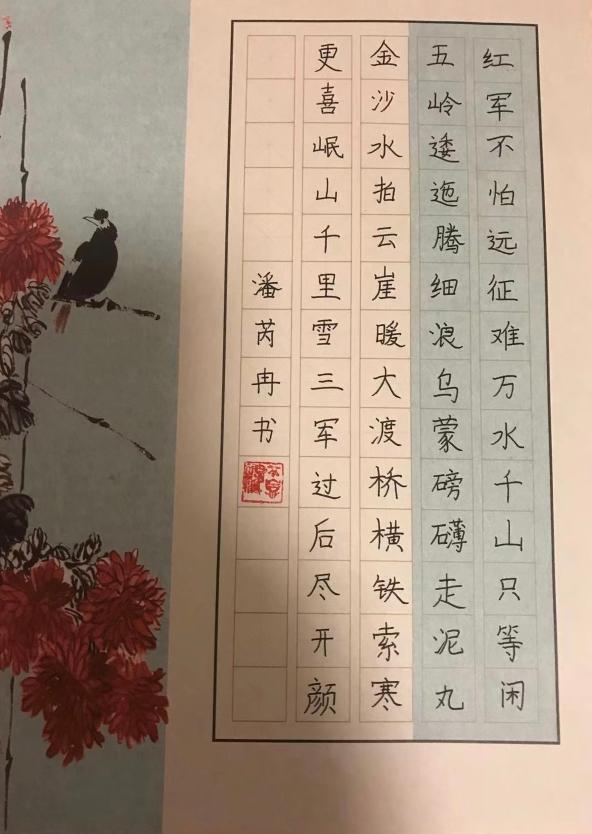 红军不怕远征难万水千山只等闲
五岭逶迤腾细浪乌蒙磅礴走泥丸
金沙水拍云崖暖大渡桥横铁索寒
更喜岷山千里雪三军过后尽开颜
潘芮冉书